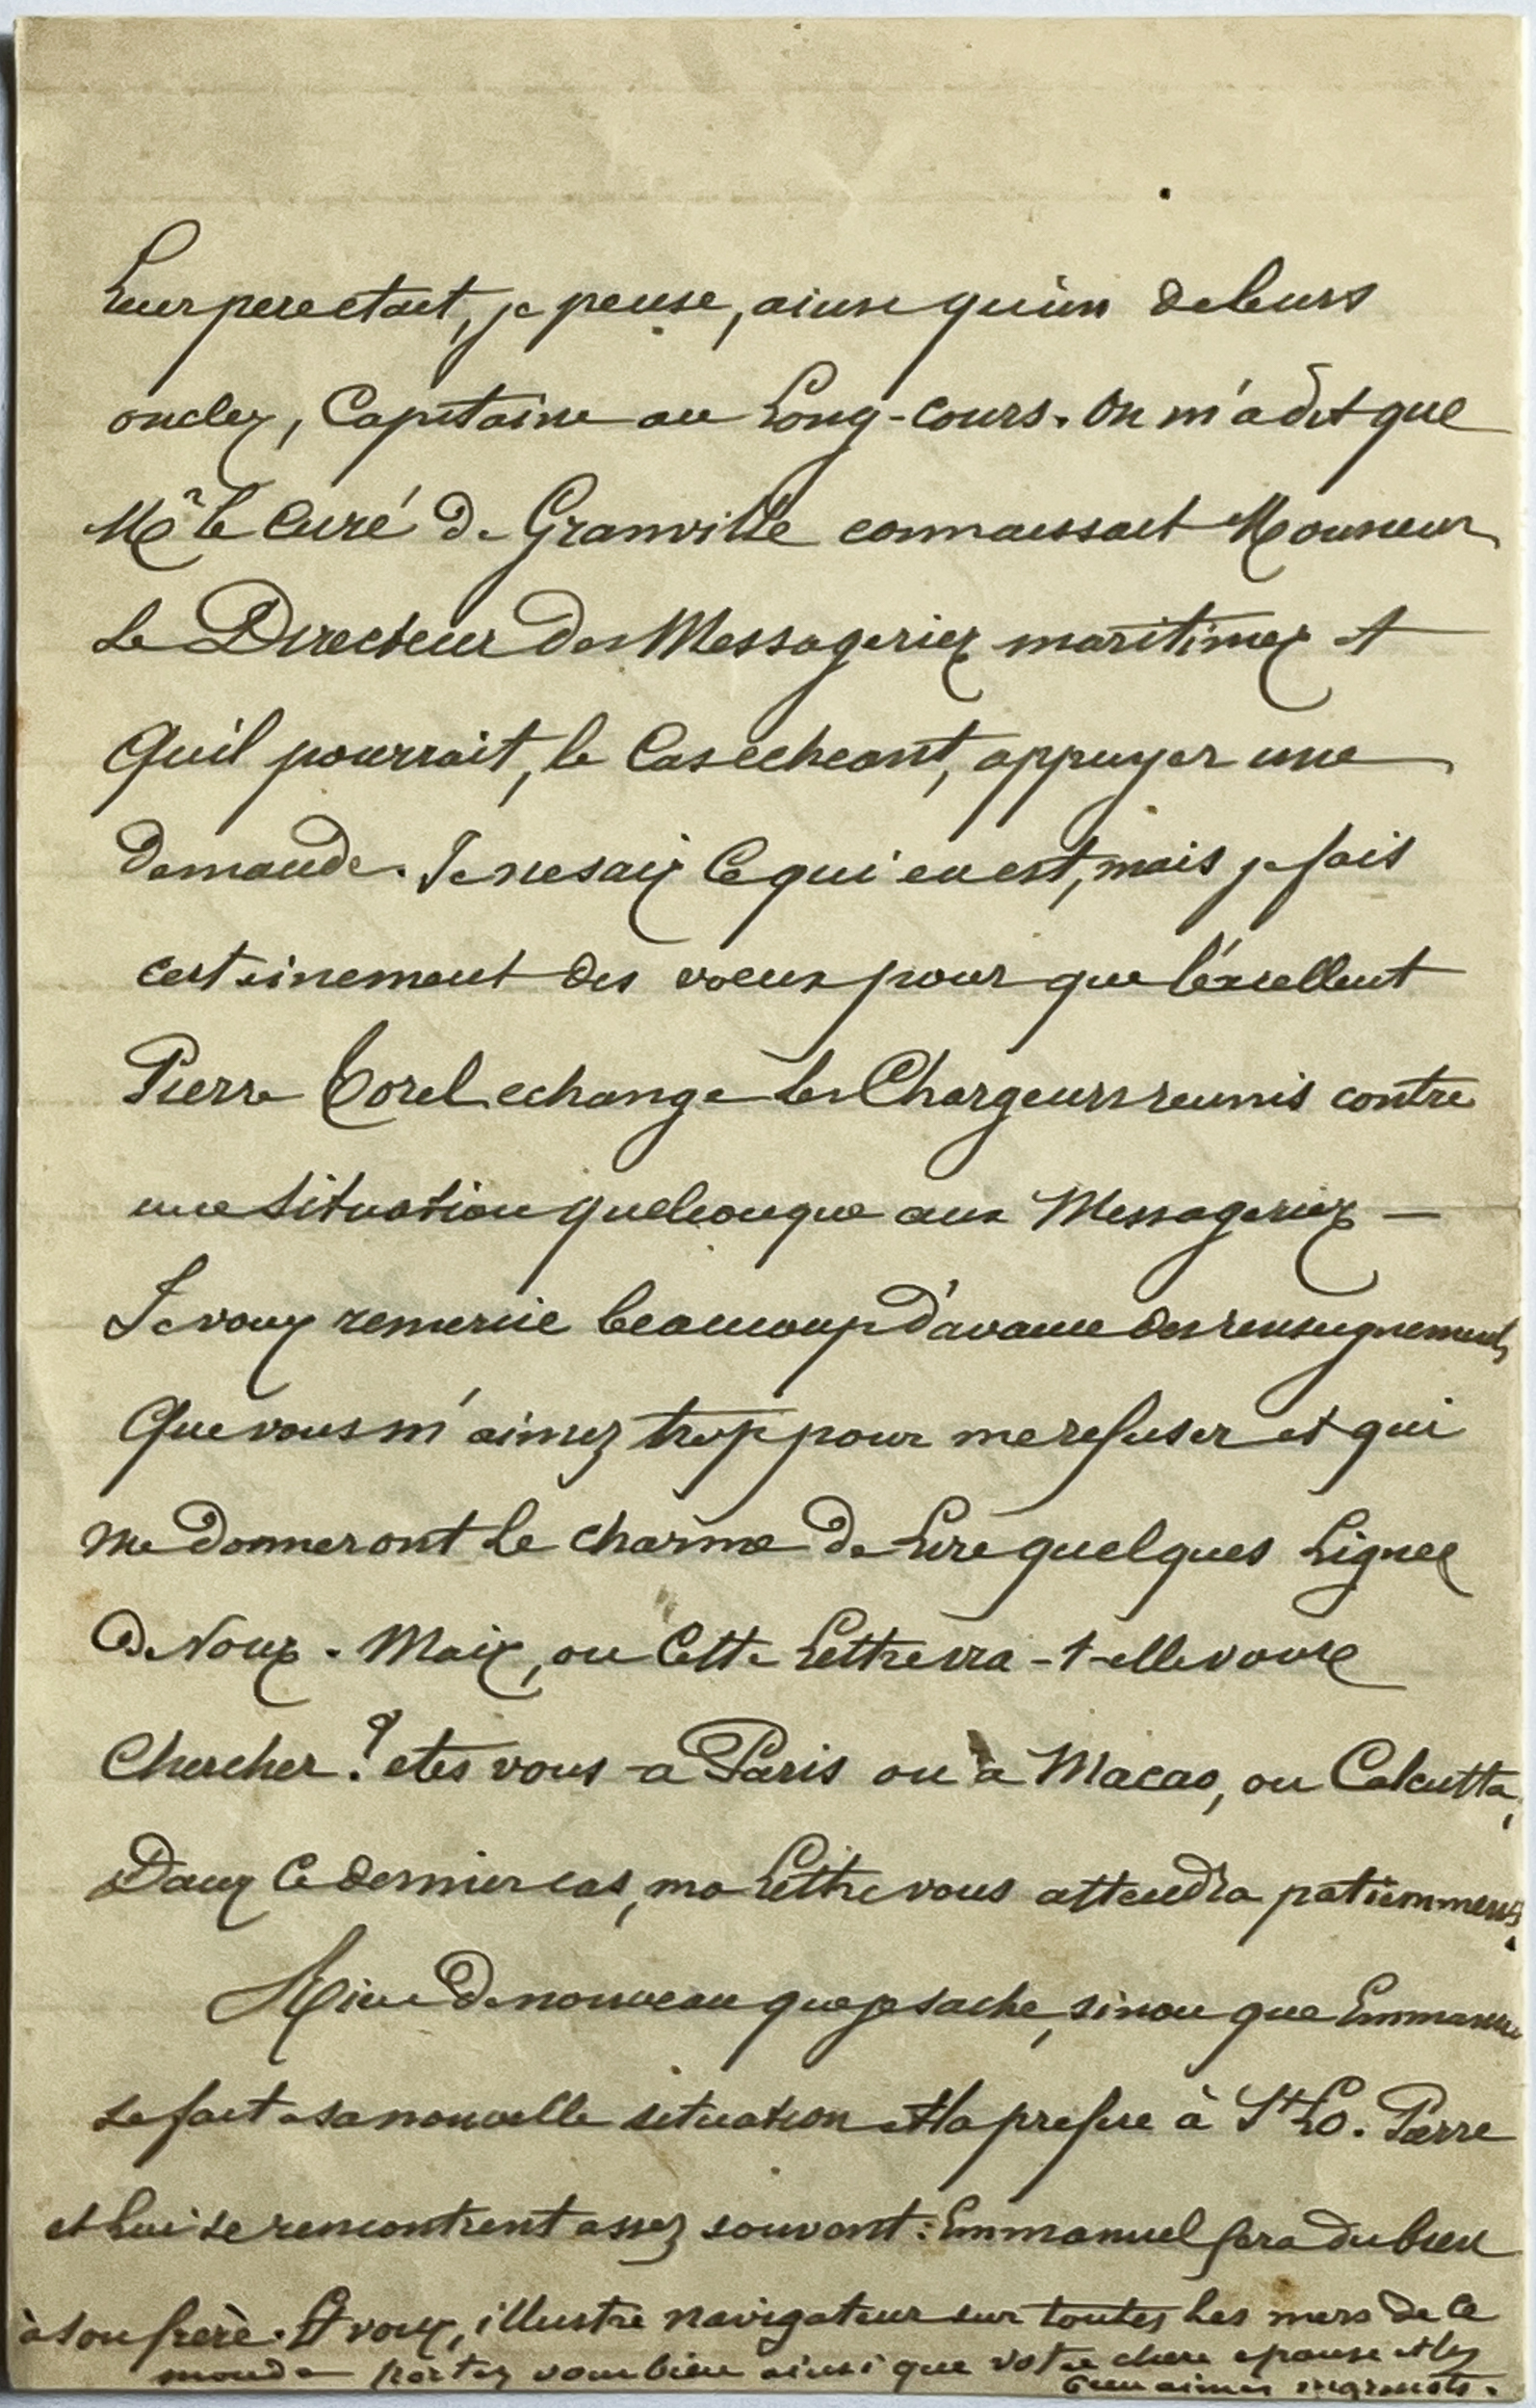 Leur pere etait, je pense, ainsi qu'un de leurs
oncles, Capitaine au Long-cours. On m'a dit que
Mr le Curé de Granville connaissait Monsieur
Le Directeur des Messageries maritimes et
Qu'il pourrait, le Cas echeant, appuyer une
demande. Je ne sais Ce qui en est, mais je fais
certainement des voeux pour que l'excellent
Pierre echange les Chargeurs reunis contre
une Situation quelconque aux Messageries —
Je vous remercie beaucoup d'avance des renseignements
Que vous m'aimez trop pour me refuser et qui
Me donneront le charme de Lire quelques Lignes
de Vous. Mais, ou Cette Lettre ira-t-elle vous
Chercher? etes vous a Paris ou à Macao, ou Calcutta,
Dans Ce dernier cas, ma Lettre vous attendra patiemment.
Rien de nouveau que je sache, sinon que Emmanuel
se fait a sa nouvelle situation et la prefere à St Lo. Pierre
et Lui se rencontrent assez souvent: Emmanuel fera du bien
à son frère. Et vous, illustre navigateur sur toutes Les mers de ce
monde portez vous bien ainsi que votre chere epouse et les
bien aimes